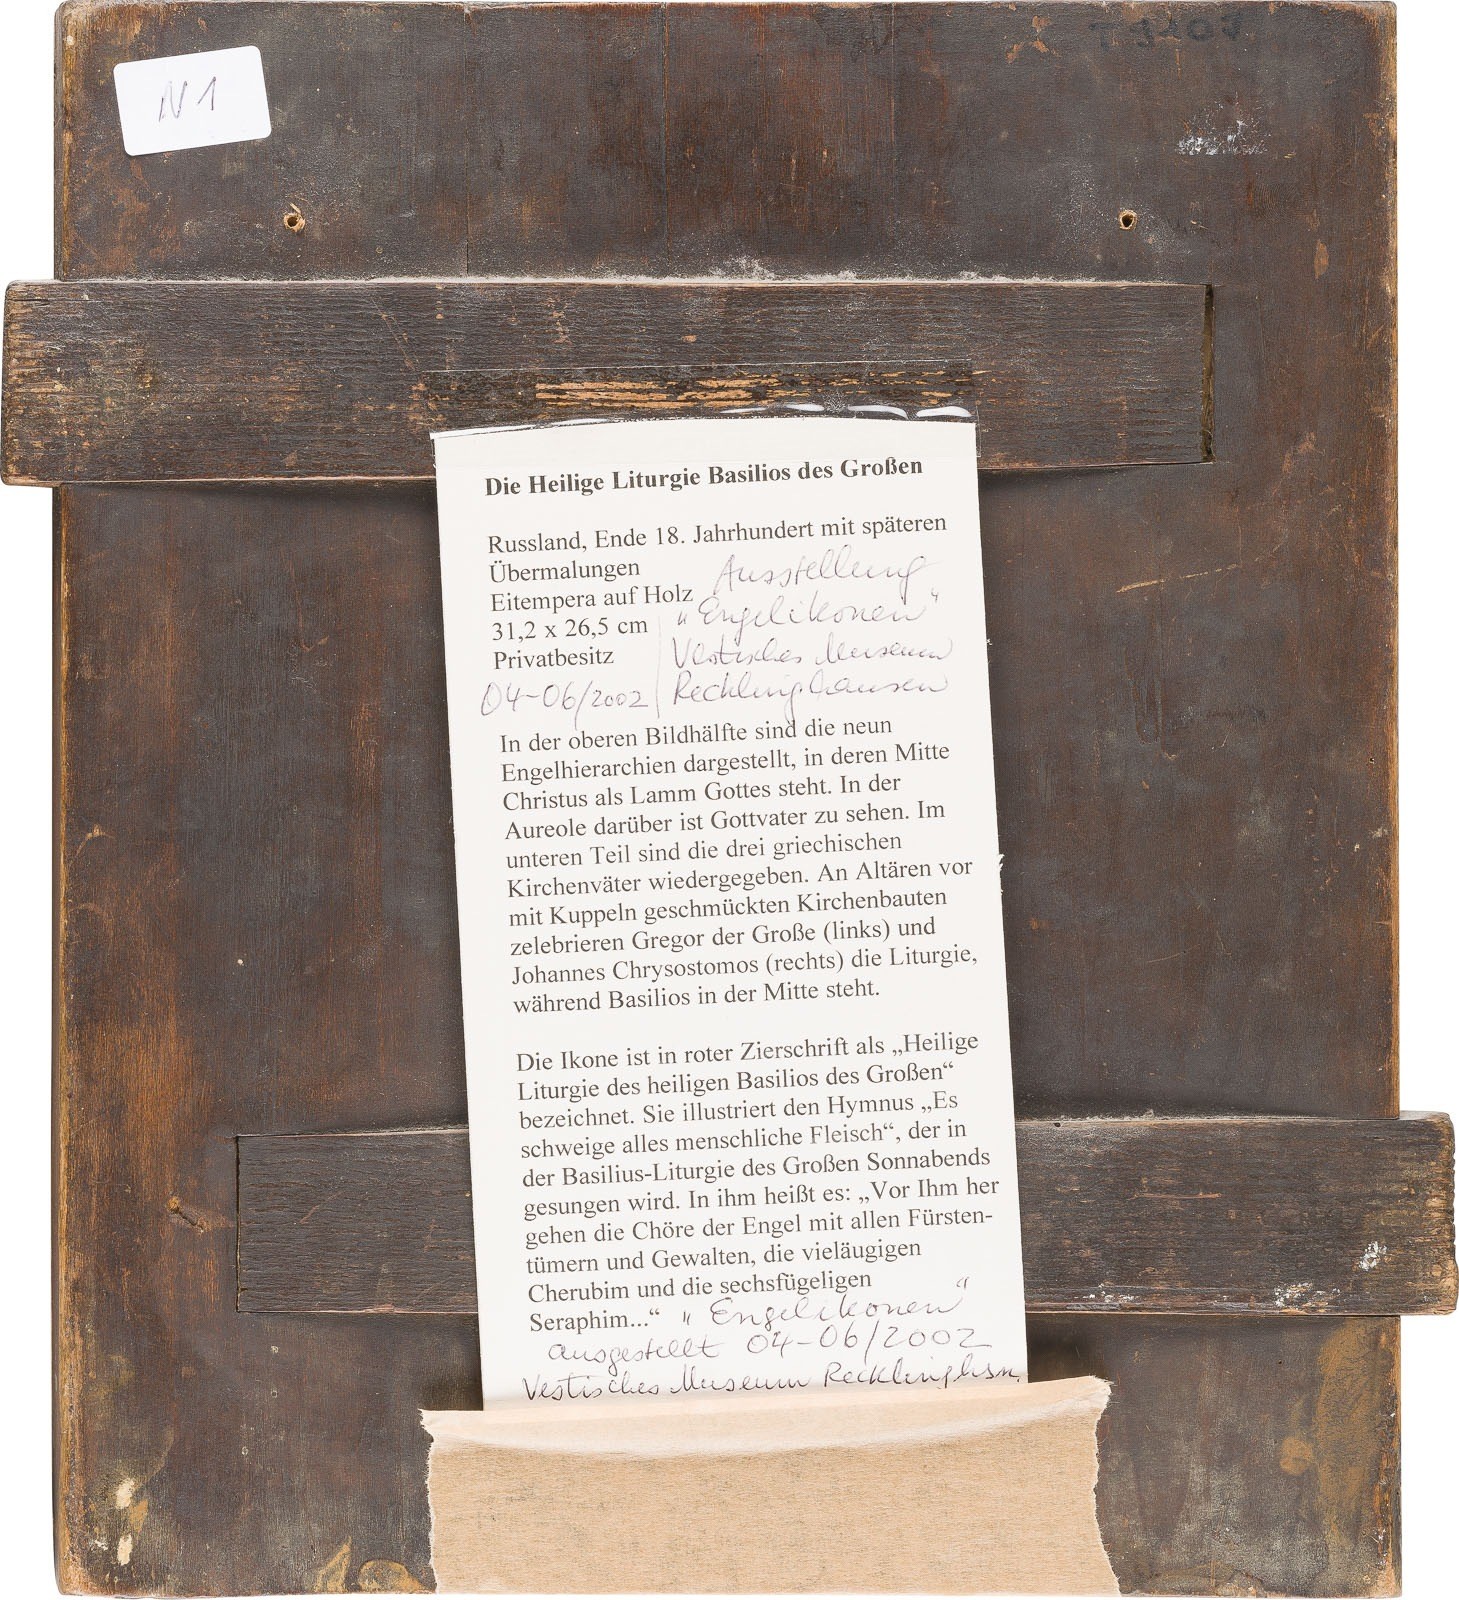 N 1
Die Heilige Liturgie Basilios des Großen
Russland, Ende 18. Jahrhundert mit späteren
Übermalungen
Eitempera auf Holz
31,2 x 26,5 cm
Privatbesitz
04-06/2002
Ausstellung
„Engelikonen"
Vestisches Museum
Recklinghausen
In der oberen Bildhälfte sind die neun
Engelhierarchien dargestellt, in deren Mitte
Christus als Lamm Gottes steht. In der
Aureole darüber ist Gottvater zu sehen. Im
unteren Teil sind die drei griechischen
Kirchenväter wiedergegeben. An Altären vor
mit Kuppeln geschmückten Kirchenbauten
zelebrieren Gregor der Große (links) und
Johannes Chrysostomos (rechts) die Liturgie,
während Basilios in der Mitte steht.
Die Ikone ist in roter Zierschrift als „Heilige
Liturgie des heiligen Basilios des Großen“
bezeichnet. Sie illustriert den Hymnus „Es
schweige alles menschliche Fleisch“, der in
der Basilius-Liturgie des Großen Sonnabends
gesungen wird. In ihm heißt es: „Vor Ihm her
gehen die Chöre der Engel mit allen Fürsten-
tümern und Gewalten, die vieläugigen
Cherubim und die sechsfügeligen
Seraphim...“ „Engelikonen"
ausgestellt 04-06/2002
Vestisches Museum Recklinghsn.